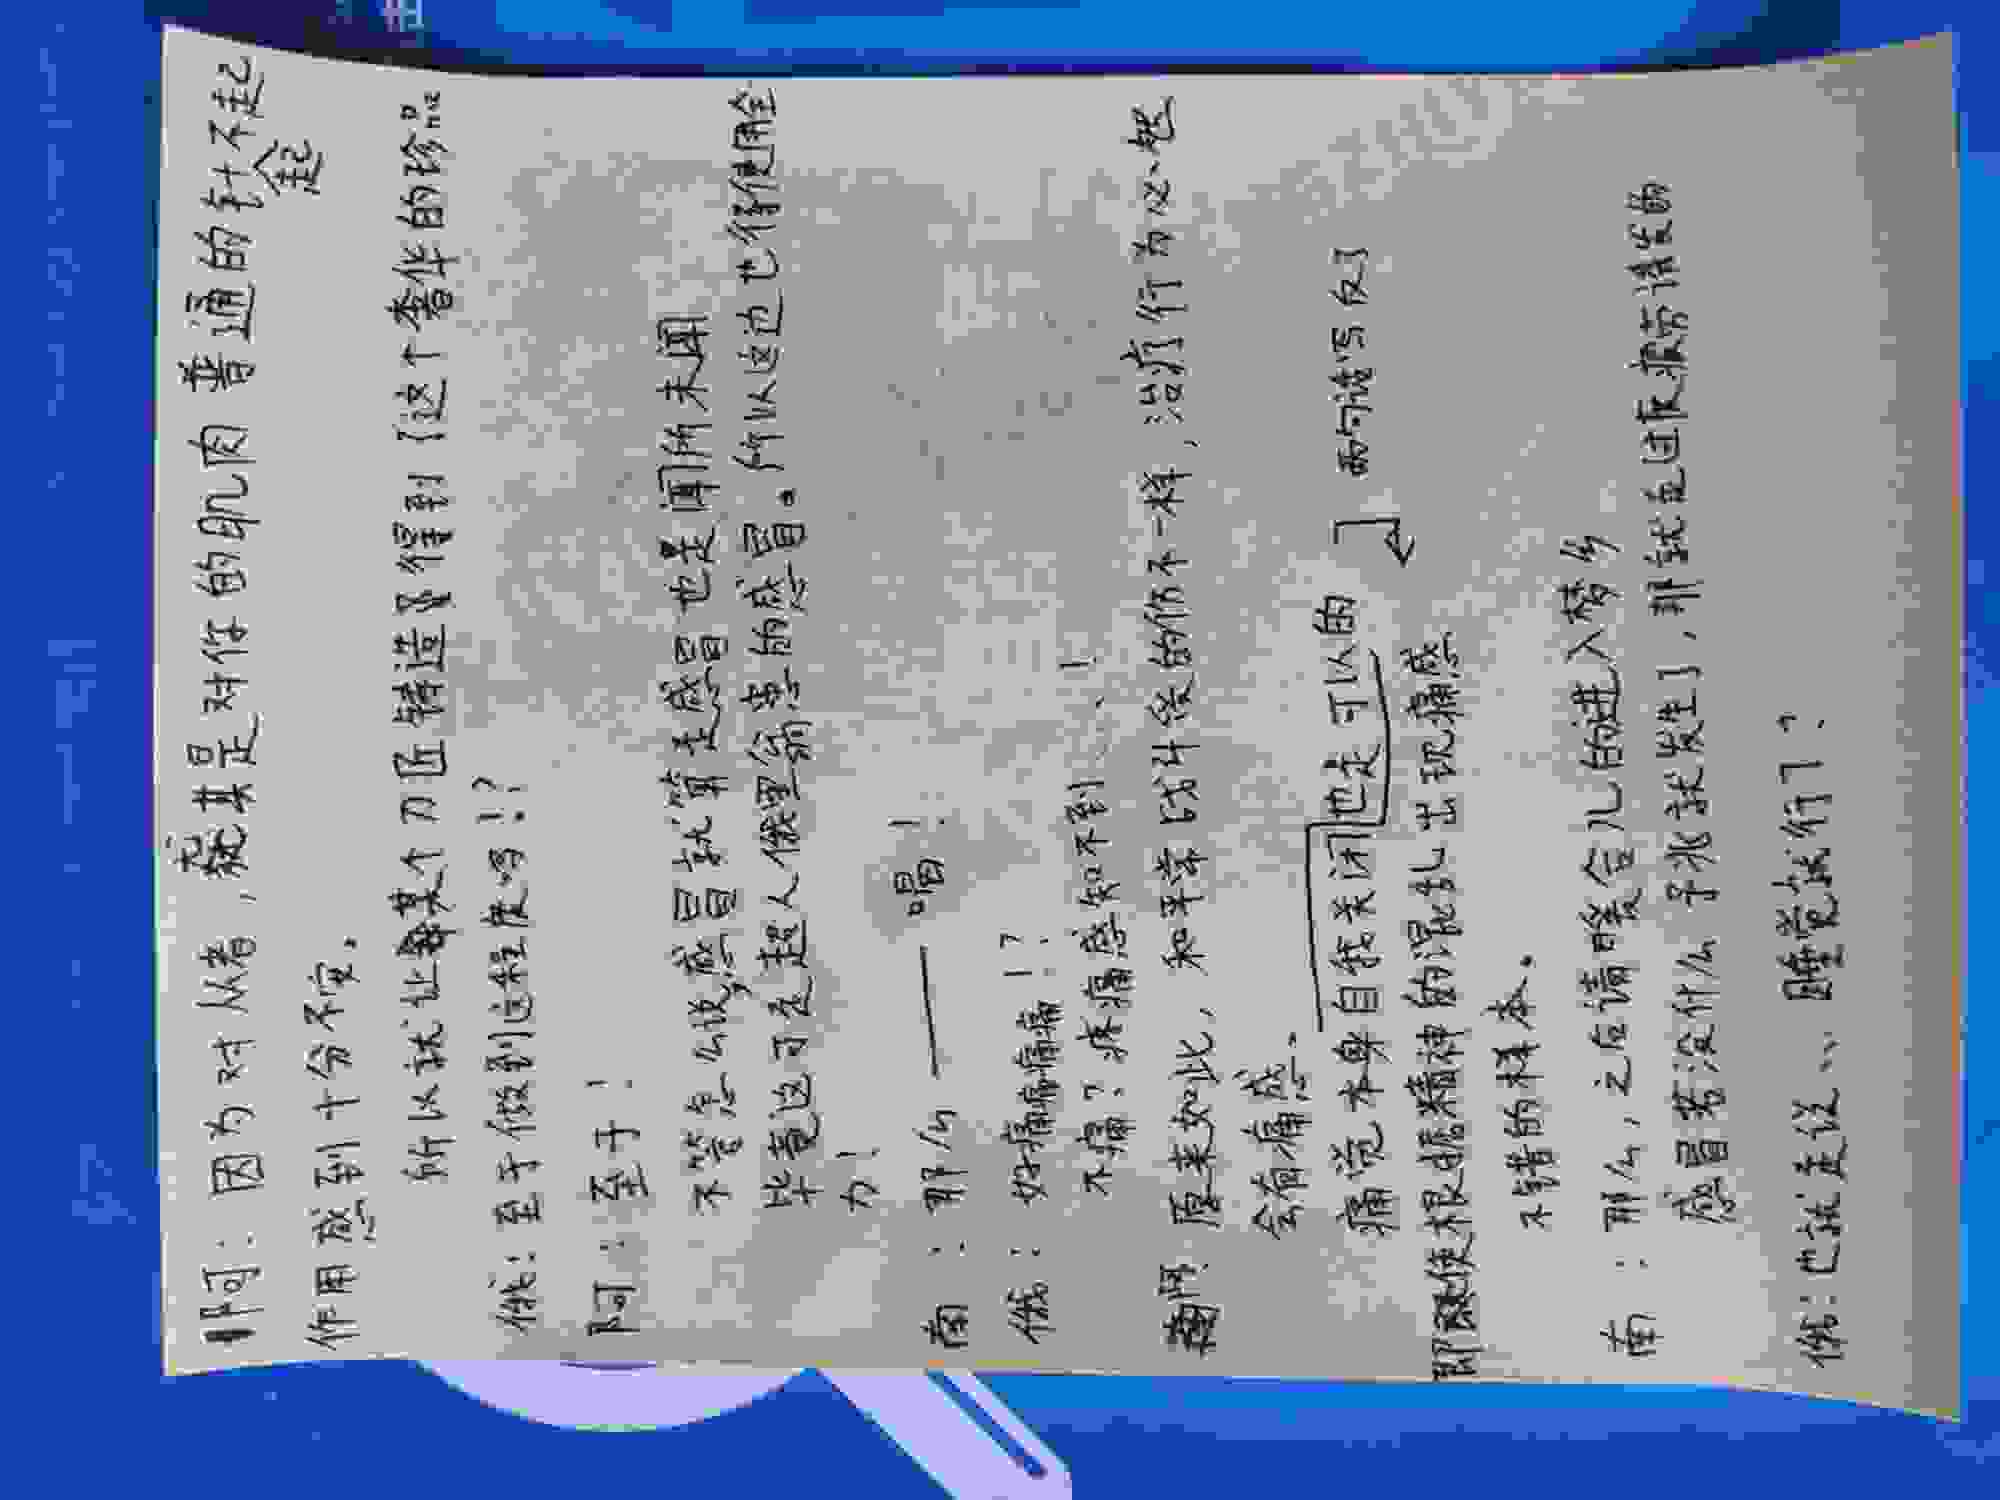 阿：因为对从者，尤其是对你的肌肉 普通的针不起
作用感到十分不安。
所以就让某个刀匠铸造了得到了这个奢华的珍品
俄：至于做到这程度吗！？
阿：至于！
不管怎么说，感冒就算是感冒也是闻所未闻
毕竟这可是超人俄里翁的感冒。所以这边也得使用全
力！
南：那么——喝！
俄：好痛痛痛痛！？
不痛？疼痛感知不到、、、！
南：原来如此，和平常战斗受的伤不一样，治疗行为必、
会有痛感。
痛觉本身自我关闭也是可以的 两句话写反了
即使根据精神的混乱出现痛感
不错的样本。
南：那么，之后请暖合儿的进入梦乡
感冒若没什么予兆就发生了，那就是过度疲劳诱发的
俄：也就是说、、、睡觉就行了？